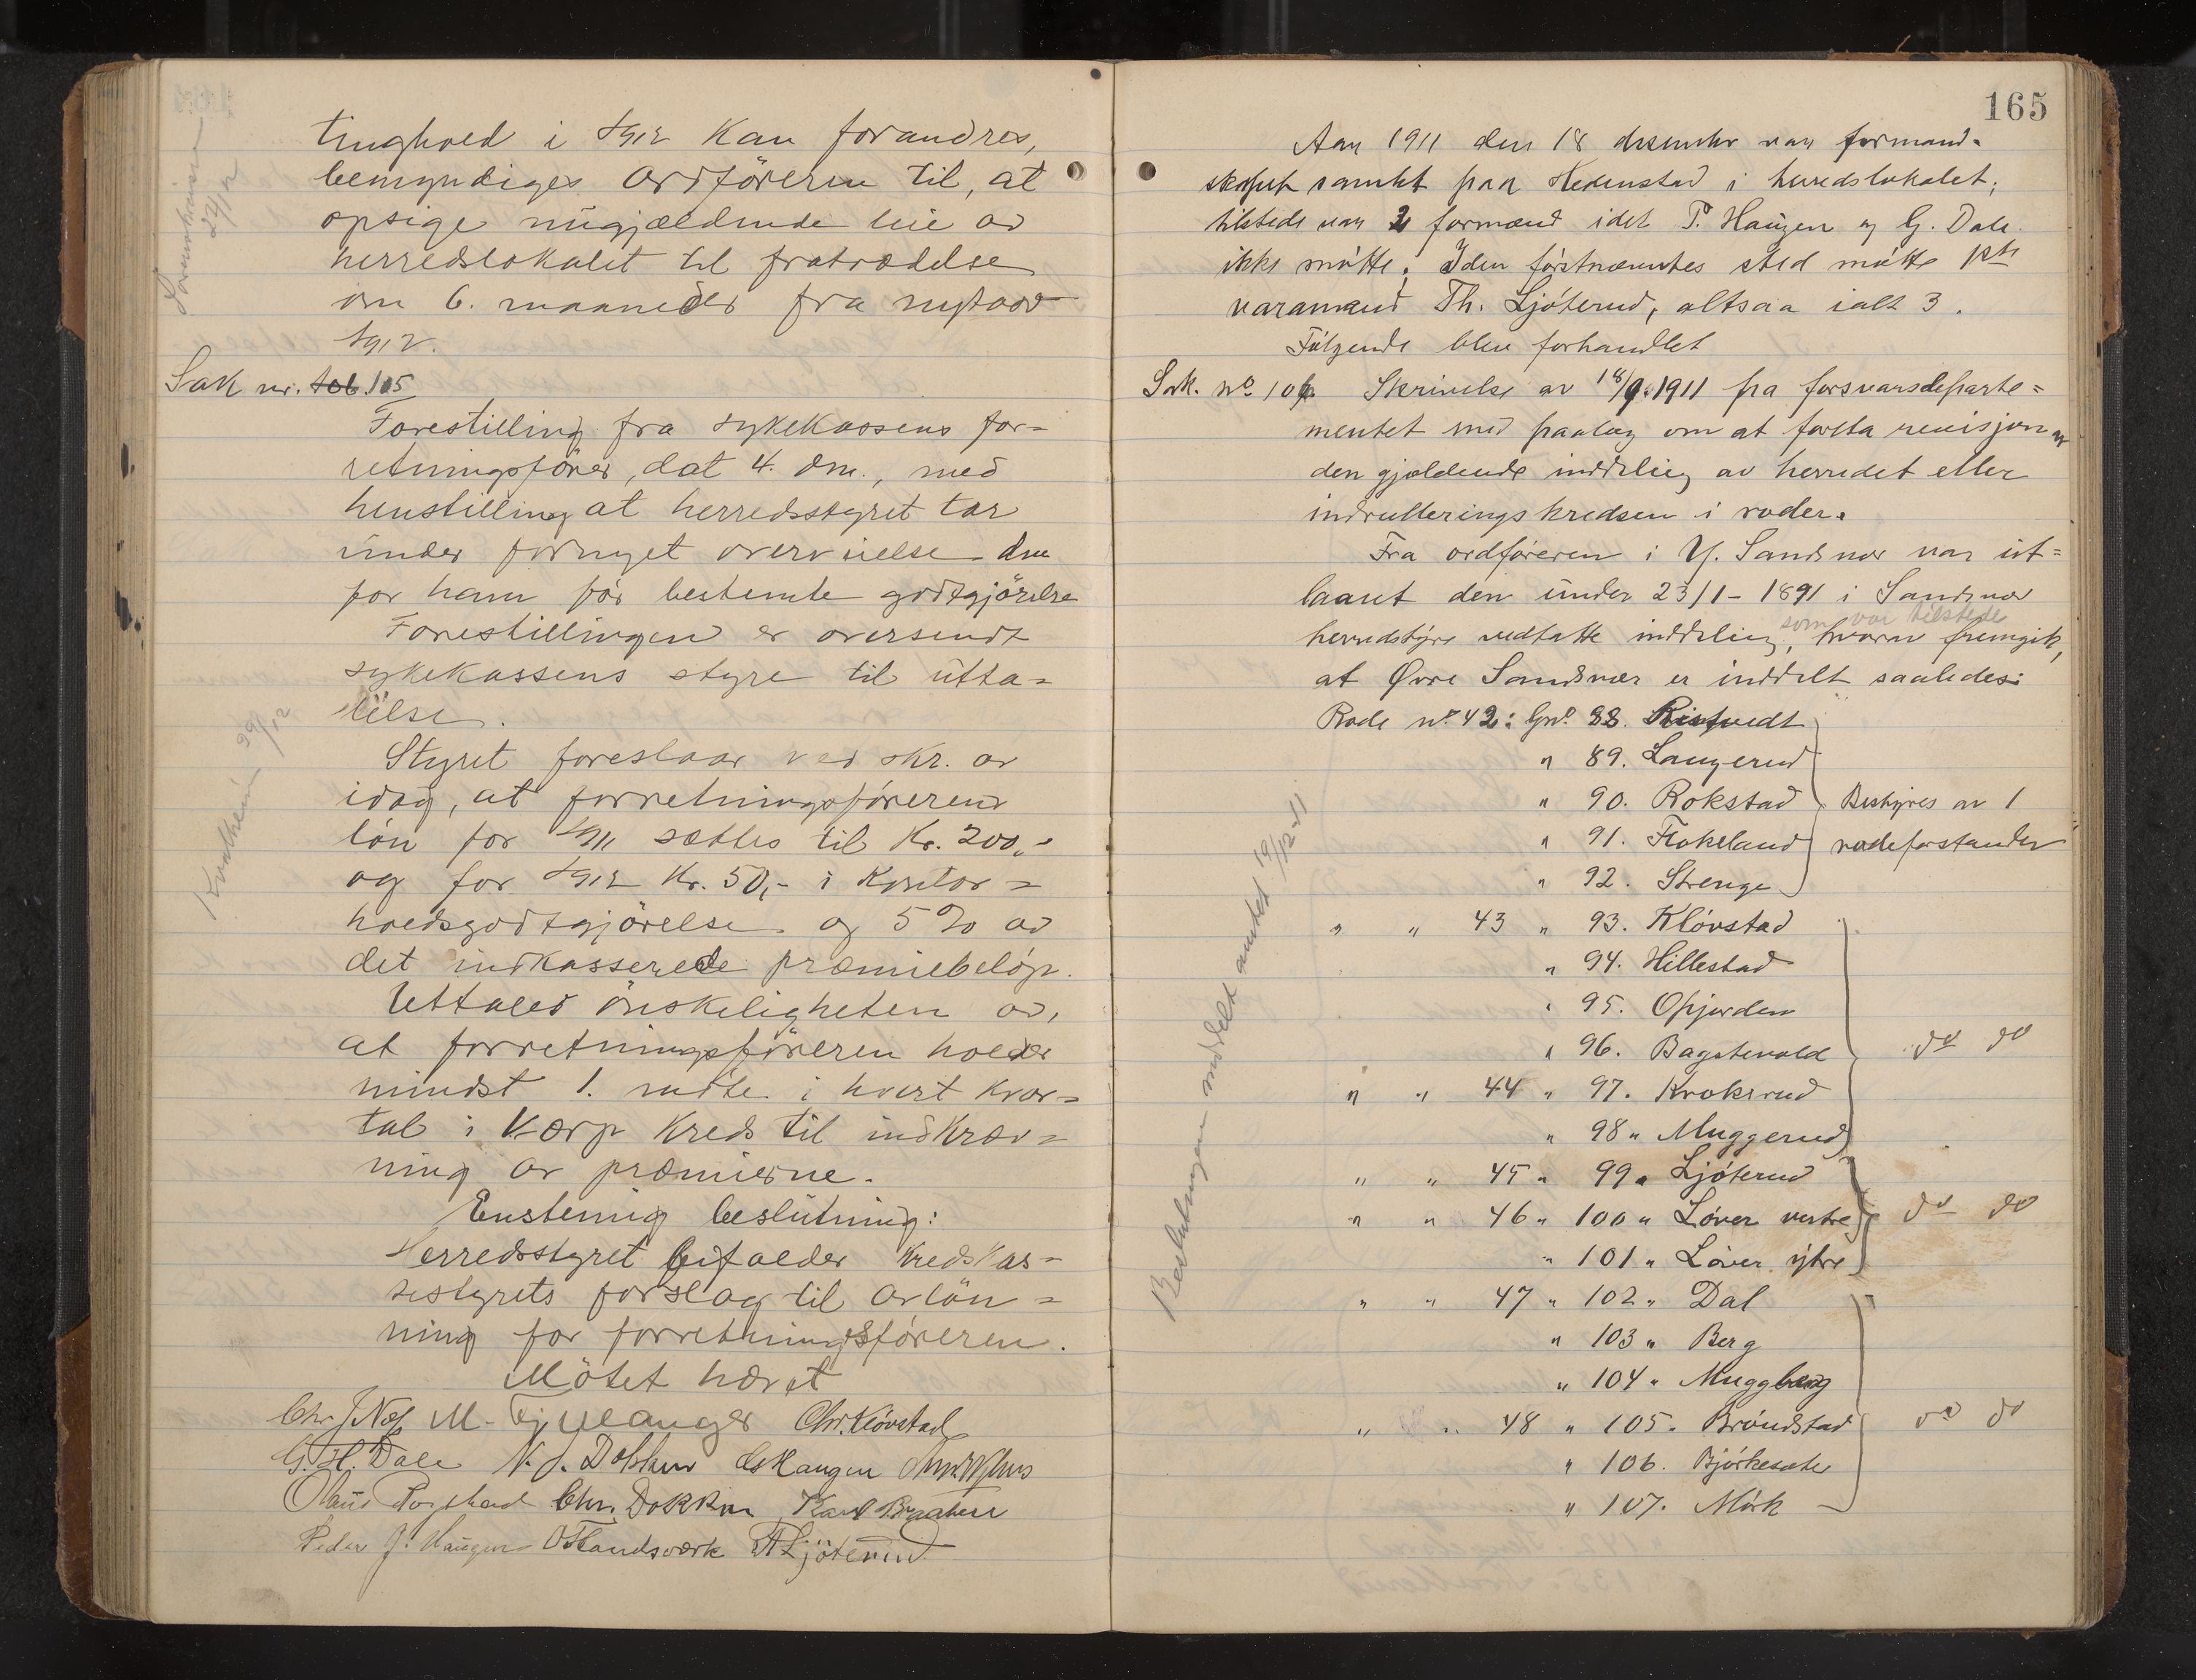 tinghold i 1912 kan forandres,
bemyndiges ordföreren til, at
opsige nugjældende leie av
herredslokalet til fratrædelse
om 6. maaneder fra nytaar
1912.
Sak nr. 106. 105
Forestilling fra sykekassens for-
retningsförer, dat 4. dm., med
henstilling at herredsstyret tar
under fornyet overveielse den
for ham før bestemte godtgjörelse
Forestillingen er oversendt
sykekassens styre til utta-
lelse.
Styret foreslaar ved skr. av
idag, at forretningsförerens
lön for 1911 sættes til Kr. 200,-
og for 1912 Kr. 50,- i kontor-
holdsgodtgjörelse og 5 % av
det indkasserede præmiebelöp.
Uttales önskeligheten av,
at forretningsföreren holder
mindst 1. möte i hvert kvar-
tal i Kærp kreds til indkræv-
ning av præmierne.
Enstemig beslutning:
Herredsstyret bifalder kredskas-
sestyrets forslag til avlön-
ning for forretningsföreren.
Mötet hævet
Chr. J. Næf M. Chr. Klövstad
G. H. Dale N. J. Dokken Haugen
Olaus Chr. Dokken Karl Braaten
Peder J. Haugen O Landsværk Th Ljöterud
Kvalheim 29/12
24/12
165
Aar 1911 den 18 desember var formand-
skapet samlet paa Hedenstad i herredslokalet;
tilstede var 2 formænd idet P. Haugen og G. Dale
ikke møtte. I den förstnævntes sted møtte 1ste
varamand Th. Ljøterud, altsaa ialt 3.
Følgende blev forhandlet
Sak. No 106. Skrivelse av 18/9.1911 fra forsvarsdeparte=
mentet med paalæg om at foreta revisjon av
den gjældende inddeling av herredet eller
indrulleringskredsen i roder.
Fra ordføreren i Y. Sandsvær var ut=
laant den under 23/1-1891 i Sandsvær
som var tilstede
herredstyre vedtatte inddeling, hvorav fremgik,
at Øvre Sandsvær er inddelt saaledes:
Rode no 42: Gno 88. Ristvedt
" 89. Langerud
" 90. Rokstad Bestyres av 1
" 91. Flokeland rodeforstander
" 92. Strenge
" " 43 " 93. Kløvstad
" 94. Hillestad
" 95. Opjorden
" 96. Bagstevold do do
" " 44 " 97. Kroksrud
" 98 " Muggerud
" " 45 " 99 " Ljøterud
" " 46 " 100 " Løver vestre do do
" 101 " Løver ytre
" " 47 " 102 " Dal
" 103 " Berg
" 104 " Muggberg
" " 48 " 105. Brøndstad do do
" 106. Bjørkesæter
" 107. Mörk
Beslutningen meddelt amtet 19/12-11